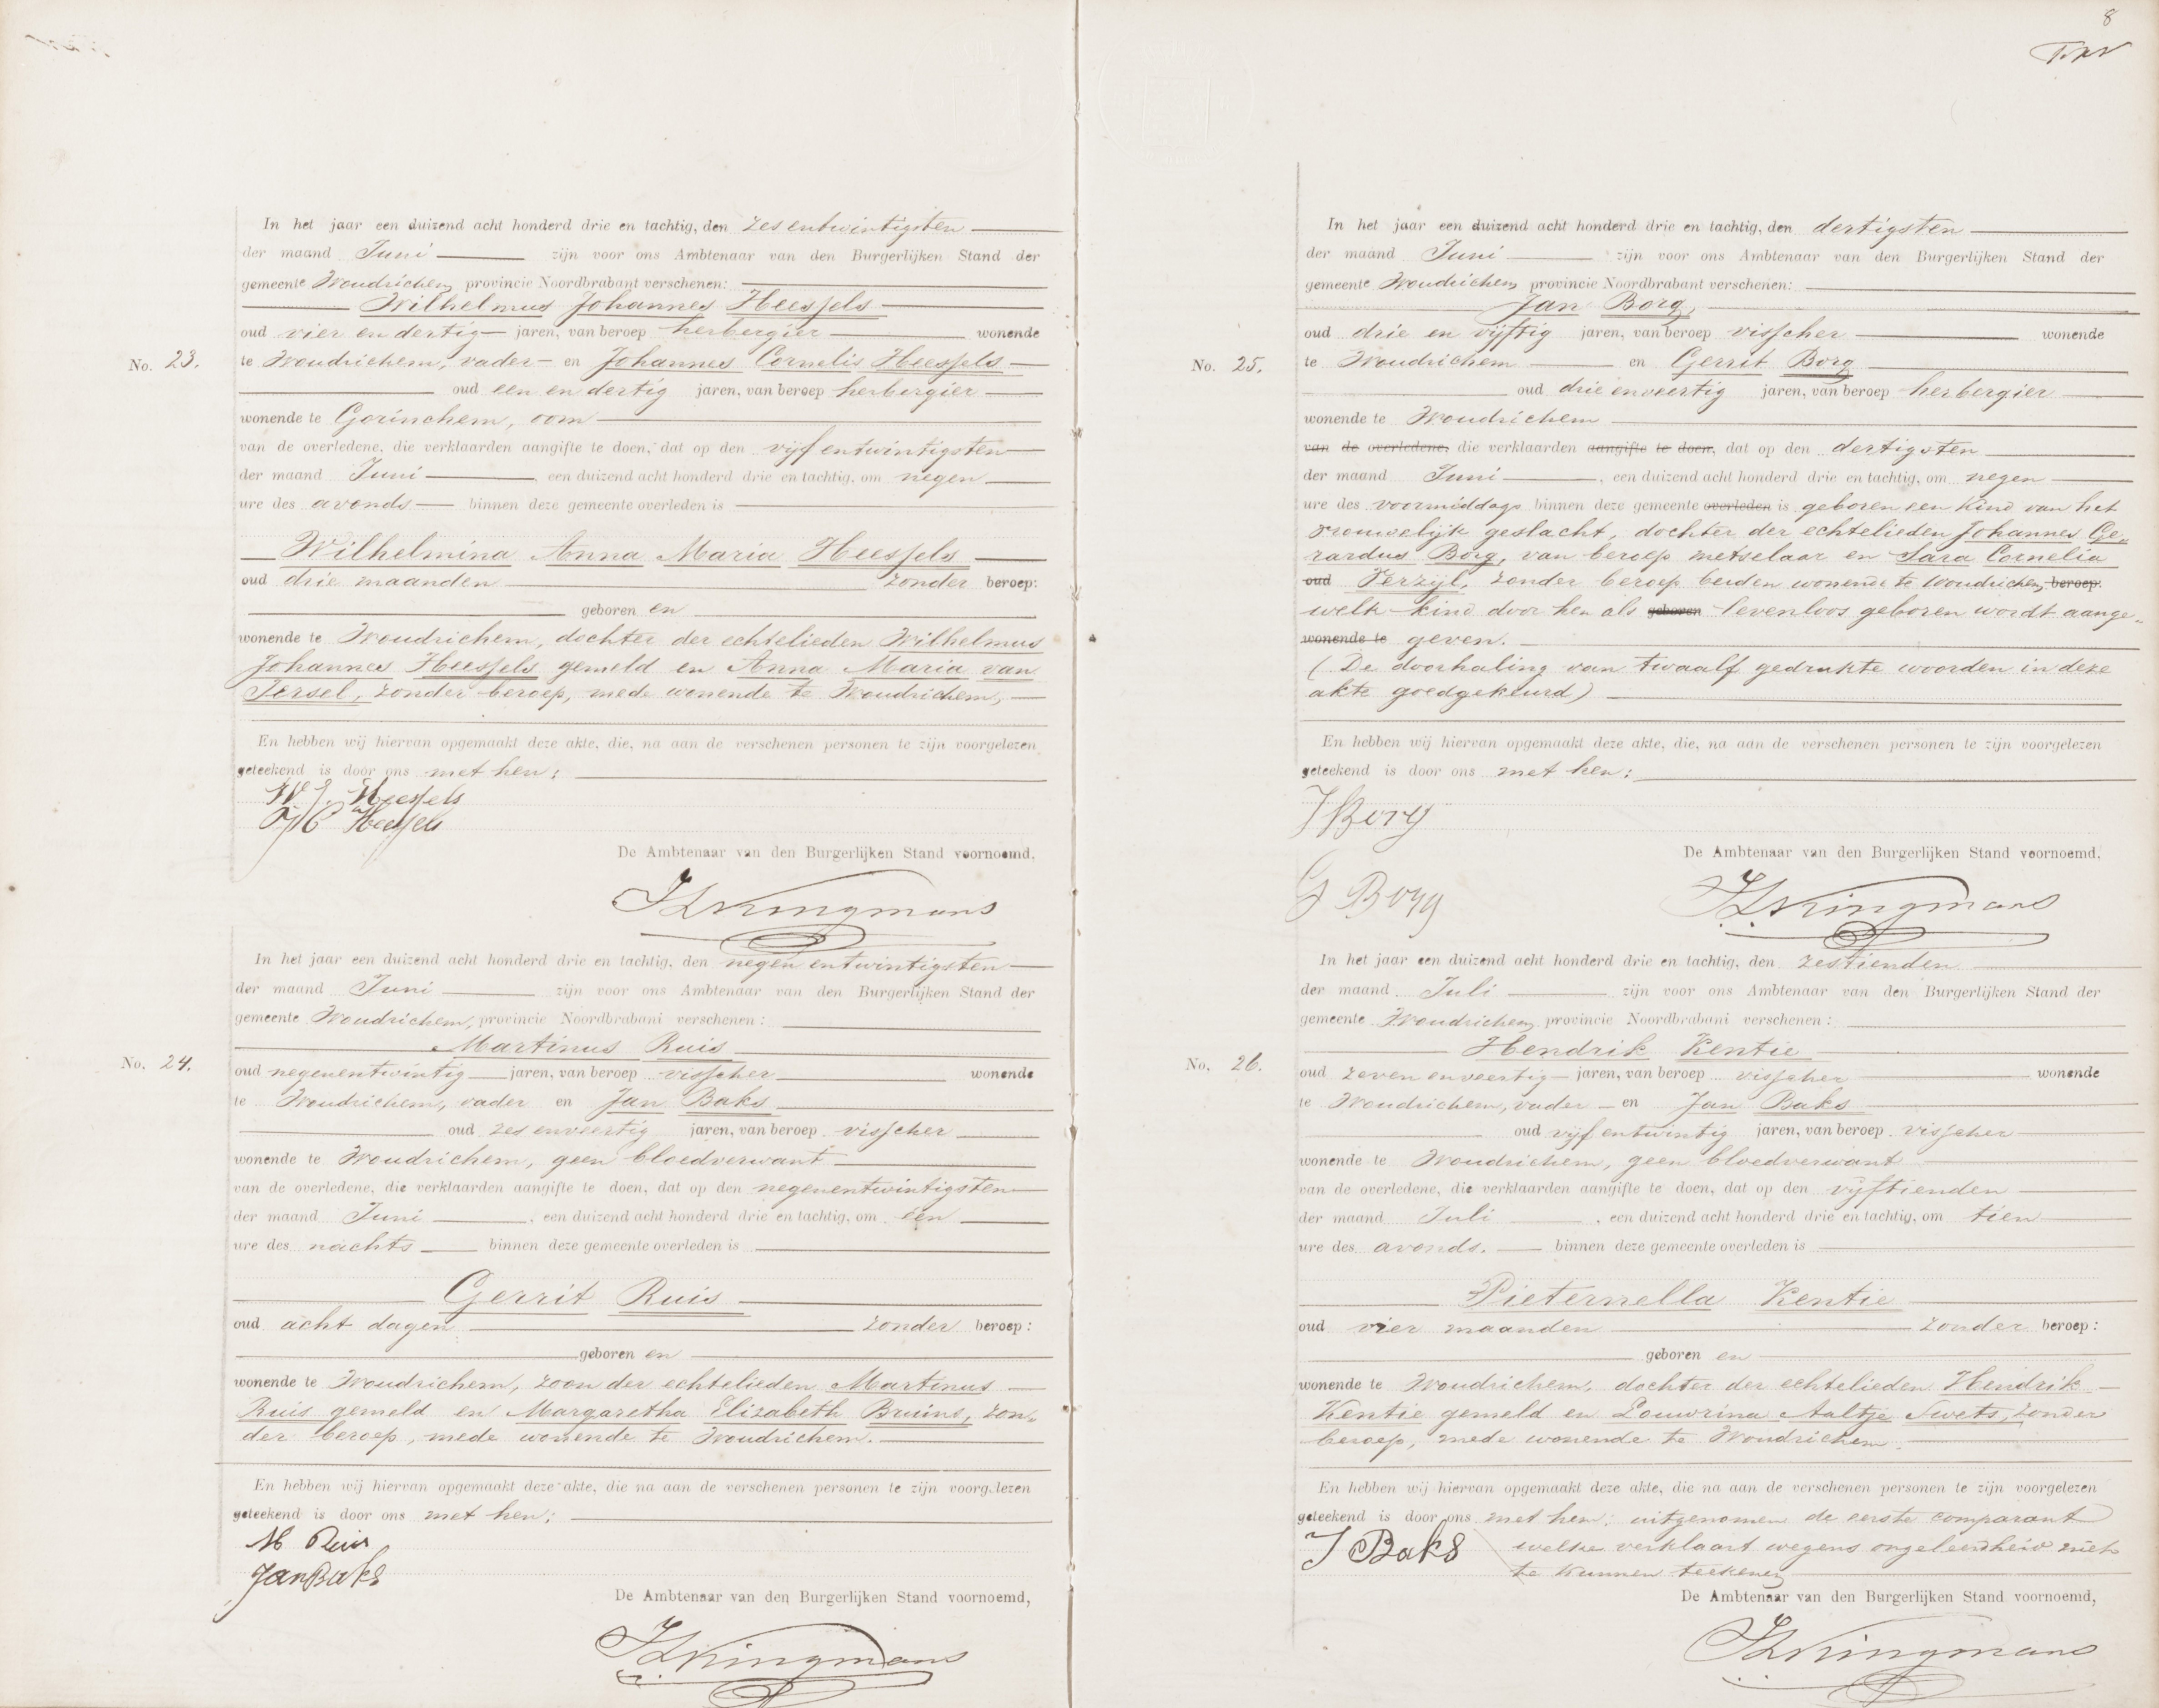 In het jaar een duizend acht honderd drie en tachtig, den zesentwintigsten
der maand Juni zijn voor ons Ambtenaar van den Burgerlijken Stand der
gemeente Woudrichem, provincie Noordbrabant verschenen:
Wilhelmus Johannes Heessels
oud vier en dertig jaren, van beroep herbergier wonende
No. 23. te Woudrichem, vader en Johannes Cornelis Heessels
oud een en dertig jaren, van beroep herbergier
wonende te Gorinchem, oom
van de overledene, die verklaarden aangifte te doen, dat op den vijfentwintigsten
der maand Juni, een duizend acht honderd drie en tachtig, om negen
ure des avonds binnen deze gemeente overleden is
Wilhelmina Anna Maria Heessels
oud drie maanden zonder beroep:
geboren en
wonende te Woudrichem, dochter der echtelieden Wilhelmus
Johannes Heessels gemeld en Anna Maria van
Iersel, zonder beroep, mede wonende te Woudrichem,
En hebben wij hiervan opgemaakt deze akte, die, na aan de verschenen personen te zijn voorgelezen
geteekend is door ons met hen:
W. J. Heessels
J C Heessels
De Ambtenaar van den Burgerlijken Stand voornoemd,
Kingmans
In het jaar een duizend acht honderd drie en tachtig, den negenentwintigsten
der maand Juni zijn voor ons Ambtenaar van den Burgerlijken Stand der
gemeente Woudrichem, provincie Noordbrabant verschenen:
Martinus Ruis
No. 24. oud negenentwintig jaren, van beroep visscher wonende
te Woudrichem, vader en Jan Baks
oud zesenveertig jaren, van beroep visscher
wonende te Woudrichem, geen bloedverwant
van de overledene, die verklaarden aangifte te doen, dat op den negenentwintigsten
der maand Juni, een duizend acht honderd drie en tachtig, om een
ure des nachts binnen deze gemeente overleden is
Gerrit Ruis
oud acht dagen zonder beroep:
geboren en
wonende te Woudrichem, zoon der echtelieden Martinus
Ruis gemeld en Margaretha Elizabeth Bruins, zon-
der beroep, mede wonende te Woudrichem.
En hebben wij hiervan opgemaakt deze akte, die na aan de verschenen personen te zijn voorgelezen
geteekend is door ons met hen:
M Ruis
Jan Baks
De Ambtenaar van den Burgerlijken Stand voornoemd,
Kingmans
8
In het jaar een duizend acht honderd drie en tachtig, den dertigsten
der maand Juni zijn voor ons Ambtenaar van den Burgerlijken Stand der
gemeente Woudrichem, provincie Noordbrabant verschenen:
Jan Borg,
oud drie en vijftig jaren, van beroep visscher wonende
No. 25. te Woudrichem en Gerrit Borg
oud drieenveertig jaren, van beroep herbergier
wonende te Woudrichem
van de overledene, die verklaarden aangifte te doen, dat op den dertigsten
der maand Juni, een duizend acht honderd drie en tachtig, om negen
ure des voormiddags binnen deze gemeente overleden is geboren een kind van het
vrouwelijk geslacht, dochter der echtelieden Johannes Ge-
rardus Borg, van beroep metselaar en Sara Cornelia
oud Verzijl, zonder beroep beiden wonende te Woudrichem, beroep:
welk kind door hen als geboren levenloos geboren wordt aange-
wonende te geven.
(De doorhaling van twaalf gedrukte woorden in deze
akte goedgekeurd)
En hebben wij hiervan opgemaakt deze akte, die, na aan de verschenen personen te zijn voorgelezen
geteekend is door ons met hen:
J Borg
De Ambtenaar van den Burgerlijken Stand voornoemd,
G Borg
Kingmans
In het jaar een duizend acht honderd drie en tachtig, den zestienden
der maand Juli zijn voor ons Ambtenaar van den Burgerlijken Stand der
gemeente Woudrichem, provincie Noordbrabant verschenen:
Hendrik Kentie
No. 26. oud zevenenveertig jaren, van beroep visscher wonende
te Woudrichem, vader en Jan Baks
oud vijfentwintig jaren, van beroep visscher
wonende te Woudrichem, geen bloedverwant
van de overledene, die verklaarden aangifte te doen, dat op den vijftienden
der maand Juli, een duizend acht honderd drie en tachtig, om tien
ure des avonds. binnen deze gemeente overleden is
Pieternella Kentie
oud vier maanden zonder beroep:
geboren en
wonende te Woudrichem, dochter der echtelieden Hendrik
Kentie gemeld en Louwrina Aaltje Swets, zonder
beroep, mede wonende te Woudrichem.
En hebben wij hiervan opgemaakt deze akte, die na aan de verschenen personen te zijn voorgelezen
geteekend is door ons met hen: uitgenomen de eerste comparant
J Baks welke verklaart wegens ongeleerdheid niet
te kunnen teekenen
De Ambtenaar van den Burgerlijken Stand voornoemd,
Kingmans